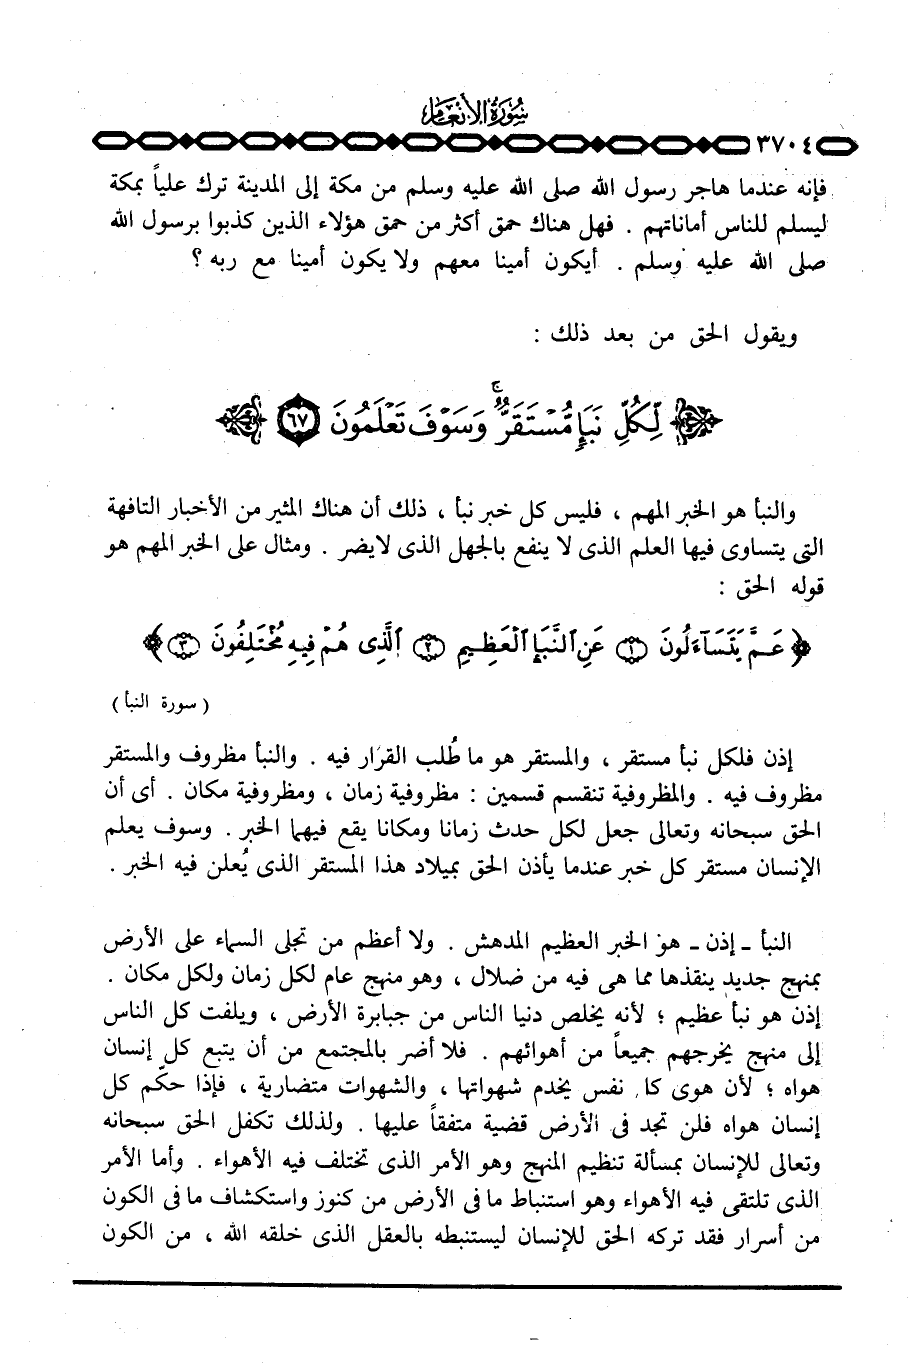 سورة الأنعام
٣٧٠٤
فإنه عندما هاجر رسول الله صلى الله عليه وسلم من مكة إلى المدينة ترك علياً بمكة
ليسلم للناس أماناتهم . فهل هناك حمق أكثر من حمق هؤلاء الذين كذبوا برسول الله
صلى الله عليه وسلم . أيكون أمينا معهم ولا يكون أمينا مع ربه ؟
ويقول الحق من بعد ذلك :
﴿ لِّكُلِّ نَبَإٍ مُّسْتَقَرٌّ ۚ وَسَوْفَ تَعْلَمُونَ ٦٧ ﴾
والنبأ هو الخبر المهم ، فليس كل خبر نبأ ، ذلك أن هناك المثير من الأخبار التافهة
التى يتساوى فيها العلم الذى لا ينفع بالجهل الذى لايضر . ومثال على الخبر المهم هو
قوله الحق :
﴿ عَمَّ يَتَسَآءَلُونَ ١ عَنِ ٱلنَّبَإِ ٱلْعَظِيمِ ٢ ٱلَّذِى هُمْ فِيهِ مُخْتَلِفُونَ ٣ ﴾
( سورة النبأ )
إذن فلكل نبأ مستقر ، والمستقر هو ما طُلب القرار فيه . والنبأ مظروف والمستقر
مظروف فيه . والمظروفية تنقسم قسمين : مظروفية زمان ، ومظروفية مكان . أى أن
الحق سبحانه وتعالى جعل لكل حدث زمانا ومكانا يقع فيهما الخبر . وسوف يعلم
الإنسان مستقر كل خبر عندما يأذن الحق بميلاد هذا المستقر الذى يُعلن فيه الخبر .
النبأ ـ إذن ـ هو الخبر العظيم المدهش . ولا أعظم من تجلى السماء على الأرض
بمنهج جديد ينقذها مما هى فيه من ضلال ، وهو منهج عام لكل زمان ولكل مكان .
إذن هو نبأ عظيم ؛ لأنه يخلص دنيا الناس من جبابرة الأرض ، ويلفت كل الناس
إلى منهج يخرجهم جميعاً من أهوائهم . فلا أضر بالمجتمع من أن يتبع كل إنسان
هواه ؛ لأن هوى كل نفس يخدم شهواتها ، والشهوات متضاربة ، فإذا حكّم كل
إنسان هواه فلن تجد فى الأرض قضية متفقاً عليها . ولذلك تكفل الحق سبحانه
وتعالى للإنسان بمسألة تنظيم المنهج وهو الأمر الذى تختلف فيه الأهواء . وأما الأمر
الذى تلتقى فيه الأهواء وهو استنباط ما فى الأرض من كنوز واستكشاف ما فى الكون
من أسرار فقد تركه الحق للإنسان ليستنبطه بالعقل الذى خلقه الله ، من الكون